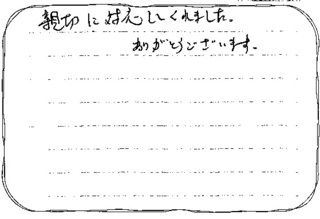 親切に対応してくれました。
ありがとうございます。